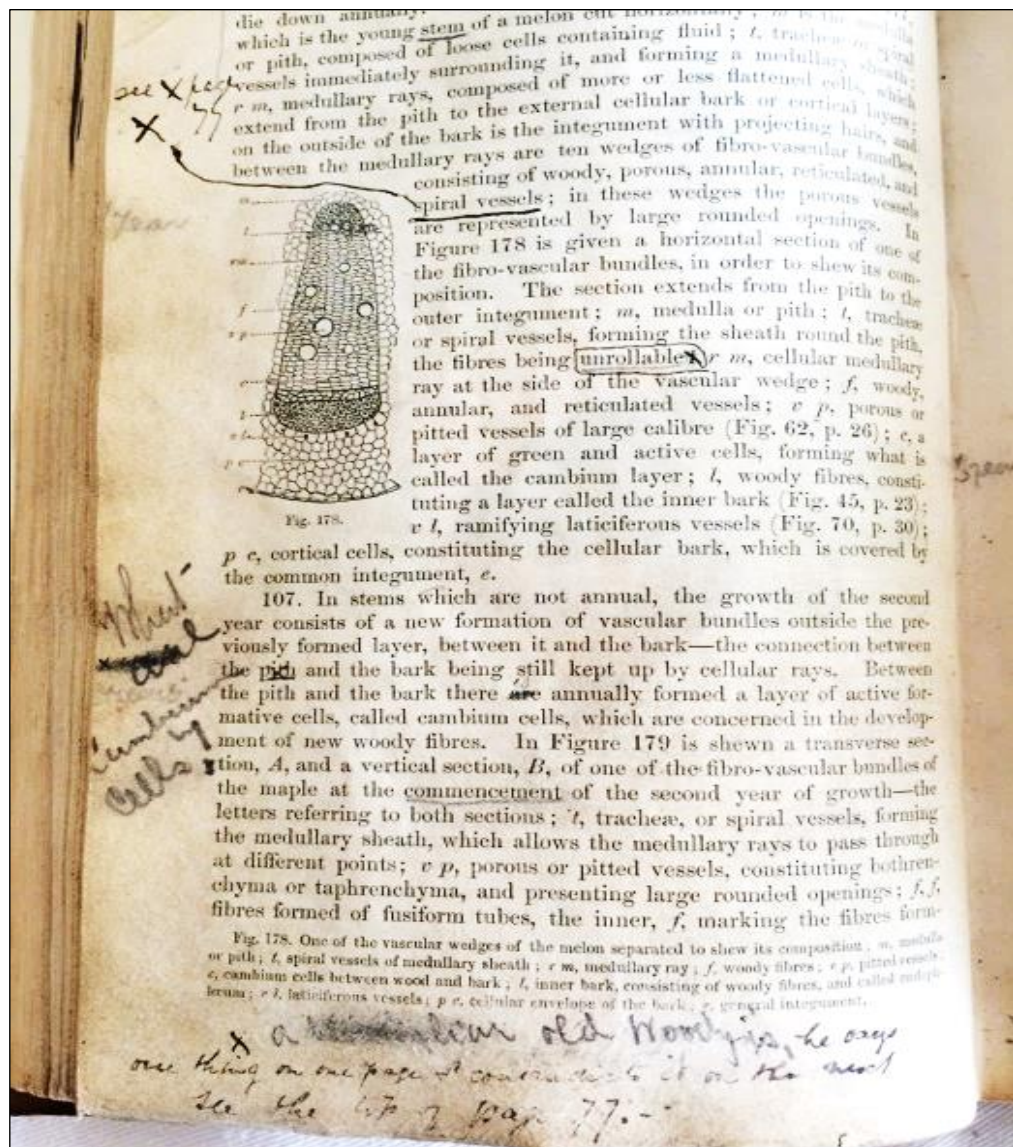 die down annually.
which is the young stem of a melon cut horizontally; m is the medulla
or pith, composed of loose cells containing fluid; t, tracheæ or spiral
vessels immediately surrounding it, and forming a medullary sheath;
r m, medullary rays, composed of more or less flattened cells, which
extend from the pith to the external cellular bark or cortical layers;
on the outside of the bark is the integument with projecting hairs, and
between the medullary rays are ten wedges of fibro-vascular bundles,
see X page
77
X
consisting of woody, porous, annular, reticulated, and
spiral vessels; in these wedges the porous vessels
are represented by large rounded openings. In
Figure 178 is given a horizontal section of one of
the fibro-vascular bundles, in order to shew its com-
position. The section extends from the pith to the
outer integument; m, medulla or pith; t, tracheæ
or spiral vessels, forming the sheath round the pith,
the fibres being unrollable; r m, cellular medullary
ray at the side of the vascular wedge; f, woody,
annular, and reticulated vessels; v p, porous or
pitted vessels of large calibre (Fig. 62, p. 26); c, a
layer of green and active cells, forming what is
called the cambium layer; l, woody fibres, consti-
tuting a layer called the inner bark (Fig. 45, p. 23);
v l, ramifying laticiferous vessels (Fig. 70, p. 30);
Fig. 178.
p c, cortical cells, constituting the cellular bark, which is covered by
the common integument, e.
107. In stems which are not annual, the growth of the second
year consists of a new formation of vascular bundles outside the pre-
viously formed layer, between it and the bark—the connection between
the pith and the bark being still kept up by cellular rays. Between
the pith and the bark there are annually formed a layer of active for-
mative cells, called cambium cells, which are concerned in the develop-
ment of new woody fibres. In Figure 179 is shewn a transverse sec-
tion, A, and a vertical section, B, of one of the fibro-vascular bundles of
the maple at the commencement of the second year of growth—the
letters referring to both sections; t, tracheæ, or spiral vessels, forming
the medullary sheath, which allows the medullary rays to pass through
at different points; v p, porous or pitted vessels, constituting bothren-
chyma or taphrenchyma, and presenting large rounded openings; f, f,
fibres formed of fusiform tubes, the inner, f, marking the fibres form-
What
are
Cambium
Cells
Fig. 178. One of the vascular wedges of the melon separated to shew its composition; m, medulla
or pith; t, spiral vessels of medullary sheath; r m, medullary ray; f, woody fibres; v p, pitted vessels
c, cambium cells between wood and bark; l, inner bark, consisting of woody fibres, and called
v l, laticiferous vessels; p c, cellular envelope of the bark; e, general integument.
X a dear old Woody is, he says
one thing on one page & contradicts it on the next
see the top of page 77.-